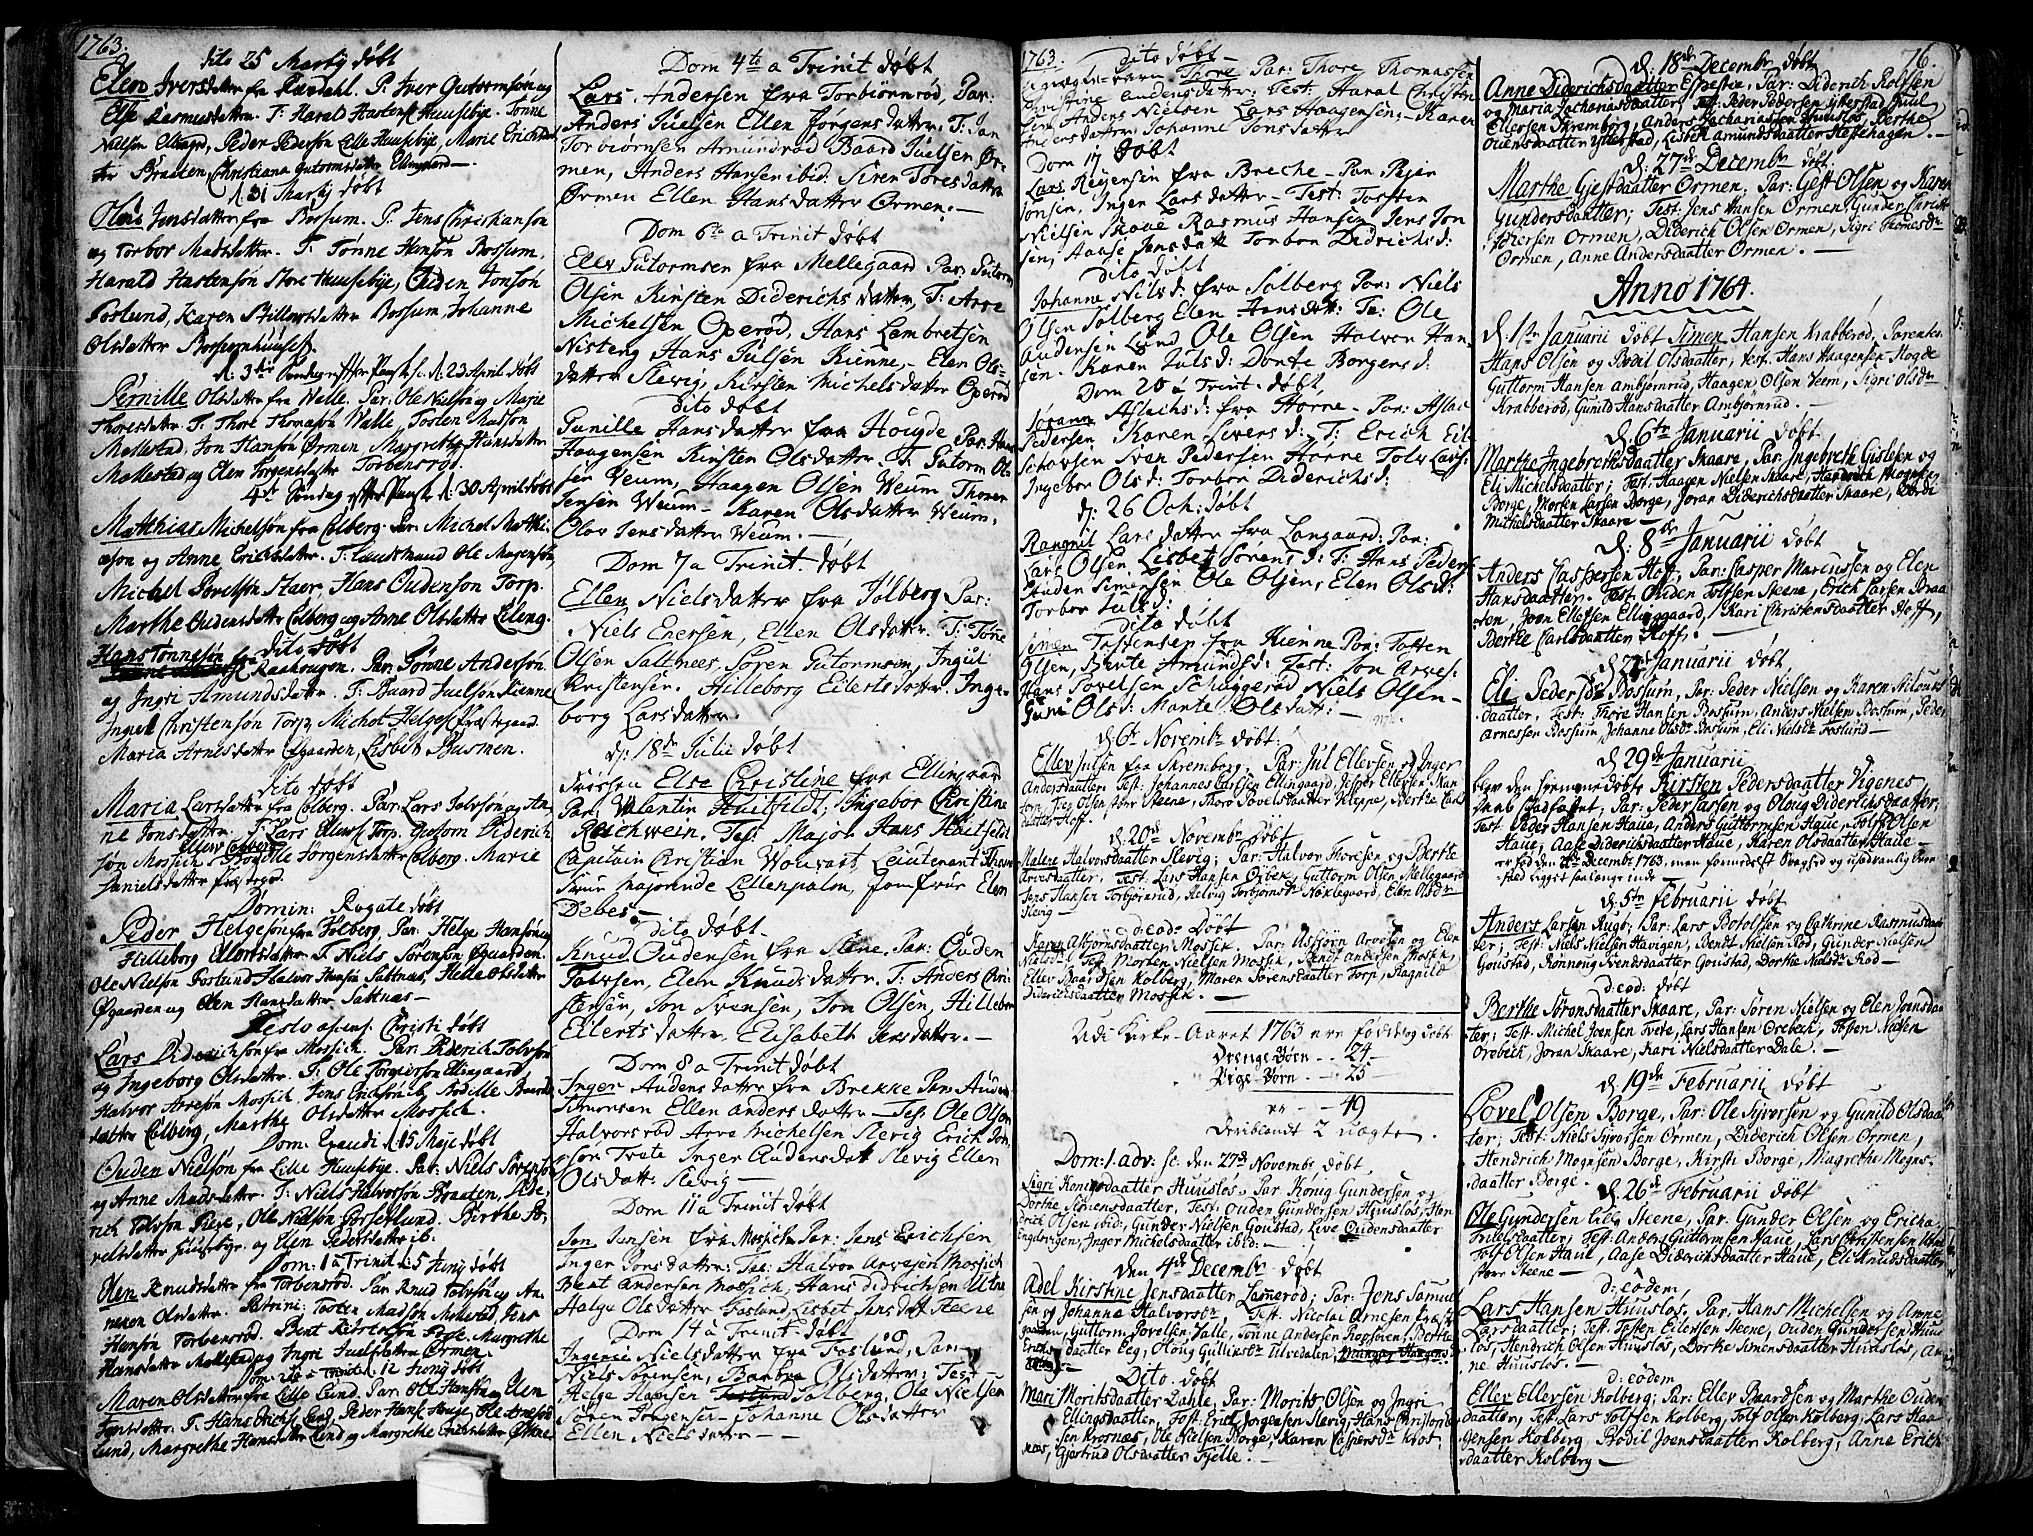 1763.
dito 25 Martij døbt
Elen Iversdatter fra Raadahl. P. Iver Gutormsøn og
Else Rasmusdatter. T: Harald Hastensøn Huusebye. Tønne
Nielsøn Peder Pederson Lille Huusebye, Marie Erichsdat
ter Braaten, Christiana Gutormsdatter
d. 31 Martij døbt
Olene Jensdatter fra Bossum. P. Jens Christiansøn
og Torbor Madsdatter. T. Tønne Hansøn Bossum,
Harald Hastensøn Store Huusebye, Ouden Jonsøn
Foslund, Karen datter Bossum, Johanne
Olsdatter
d: 3die Søndag efter Paask: d. 23 April døbt
Pernille Olsdatter fra Walle. Par: Ole Nielsøn og Marie
Thoresdatter T: Thore Thomasøn Walle Tosten Madsøn
Mellestad, Jon Hansøn Ørmen Margrethe Hansdatter
Mellestad og Elen Jørgensdatter Torbensrød.
4de Søndag efter Paask d: 30 April døbt
Matthias Michelsøn fra Colberg. Par: Michel Matthi
æson og Anne Erichsdatter. T: Ole Mogensøn,
Michel Povelsøn Skaar, Hans Oudensøn Torp.
Marthe Oudensdatter Colberg og Anne Olsdatter Eeling.
dito døbt
Hans Tønnesøn fra Raahougen. Par: Tønne Andersøn
og Ingri Amundsdatter. T: Baard Juelsøn Kienne
Ingvel Christensøn Torp, Michel Helgesøn
Maria Arnesdatter Øgaarden, Lisbet Rasmen.
Dito døbt
Maria Larsdatter fra Colberg. Par: Lars Tolvsøn og An-
ne Jonsdatter. T: Lars Torp. Diderich
Ellevsøn Colberg
søn Mossich Bodille Jørgensdatter Colberg. Marie
Danielsdatter
Domin: Rogate døbt
Peder Helgesøn fra Solberg. Par: Helge Hansøn og
Hilleborg Eilertsdatter. T. Niels Sørensøn Øgaarden.
Ole Nielsøn Foslund, Halvor Hansøn Saltnæs, Helle Olsdatter
Øgaarden og Elen Hansdatter Saltnæs—
Festo ascens: Christi døbt
Lars Diderichsøn fra Mossich. Par: Diderich Tolvsøn
og Ingeborg Olsdatter. T: Ole Jørgensøn Ellingaard
Halvor Arvesøn Mossich, Jens Erichsøn ib, Bodille Baards
datter Colberg, Marthe Olsdatter Mossich.
Dom. Exaudi d. 15 Maji døbt
Ouden Nielsøn fra Lille Huusebye. Par: Niels Sørensøn
og Anne Madsdatter. T: Niels Halvorsøn Braaten, Dide-
rich Tolvsøn Ole Nielsøn Birthe Po-
velsdatter Huusebye. og Elen Pedersdatter ib:
Dom: 1 a Trinit d. 5 Junij døbt
Olen Knudsdatter fra Torbensrød. Par: Knud Tolvsøn og An-
nexen Olsdatter. Patrini: Tosten Madsøn Mellestad, Jens
Hansøn Torbensrød. Bent Margrethe
Hansdatter Mellestad og Ingri Juelsdatter Ørmen.
Dom: 2 a Trinit d. 12 Junij døbt
Maren Olsdatter fra Lille Lund. Par: Ole Hansøn og Elen
datter. T. Hans Erichs: Lund, Peder Hans: Hauge, Ole Arnesøn
Lund, Margrethe Hansdatter Lund og Margrethe
Dom 4te a Trinit døbt
Lars Andersen fra Torbiørnrød, Par:
Anders Juelsen Ellen Jørgensdatter. T: Jan
Torbiørnsen Amundrød Baard Juelsen Ør-
men, Anders Hansen ibid: Siren Toresdatter
Ørmen Ellen Hansdatter Ørmen.—
Dom 6te a Trinit døbt
Ellev Gutormsen fra Mellegaard Par: Gutorm
Olsen Kirsten Diderichsdatter, T: Arve
Michelsen Operød, Hans Lambretsen
Nisteng Hans Julsen Kienne,- Elen Ols=
datter Slevig, Kirsten Michelsdatter Operød
Dito døbt
Gunille Hansdatter fra Hougde Par: Hans
Haagensen Kirsten Olsdatter. T: Gutorm Ol-
sen Weum, Haagen Olsen Weum Thoren
Jensen Weum- Karen Olsdatter Weum,
Olov Jensdatter Weum.—
Dom 7 a Trinit. døbt
Ellen Nielsdatter fra Sølberg, Par:
Niels Enersen, Ellen Olsdatter. T: Tønne
Olsen Saltnees Søren Gutormsen, Ingul
Kristensen. Hilleborg Eilertsdatter. Inge-
borg Larsdatter.
d: 18de Julii døbt
Frøchen Else Christine fra Ellingaard
Par: Valentin Huitfeldt, Ingebor Christine
Reichwein. Tes: Major Hans Huitfeldt
Capitain Christian Wolvart, Leiutenant
Frue Majorinde Lillenpalm, Jomfrue Elen
Debes.—
dito døbt.
Knud Oudensen fra Steene. Par: Ouden
Tolvsen, Elen Knudsdatter. T: Anders Chri-
stensen, Jon Svensen, Jon Olsen, Hillebor
Eilertsdatter, Elisabeth Jensdatter.—
Dom 8 a Trinit døbt
Inger Audensdatter fra Brekke Par: Auden
Simensen Ellen andersdatter- Tes: Ole Olsen
Halvorsrød Arve Michelsen Slevig Erich Jon-
søn Trate Inger Audensdatt Slevig Ellen
Olsdatt: Slevig—
Dom 11 a Trinit døbt
Jon Jensen fra Mosich Par: Jens Erichsen
Inger Jonsdatter: Tes: Halvor Arvesen Mossich
Bent Andersen Mossich, Hans Didrichsen Utne
Halge Olsdatter Foslund Lisbet Jensdatt Steene
Dom 14 a Trinit døbt
Ingeniæ Nielsdatter fra Foslund, Par:
Niels Sørensen, Barbra Olsdatter; Test:
Helge Hansen Sølberg, Ole Nielsen
Søren Jørgensen- Johanne Olsdatter
Ellen Nielsdatter—
1763. Dito døbt—
Barn Thore Par: Thore Thomassen
Christine andersdatter: Test: Haral Christen
sen Anders Nielsen Lars Haagensen- Karen
Andersdatter, Johanne Jonsdatter
Dom 17 Døbt
Lars Reyersen fra Breche- Par: Rejer
Jonsen, Inger Larsdatter- Test: Tosten
Nielsen Skove Rasmus Hansen Jens Jon
sen, Haase Jensdatt Torbor Didrichsd:
Dito døbt
Johanne Nilsd: fra Solberg Par: Niels
Olsen Solberg Elen Hansdatt: Te: Ole
Audensen Lund Ole Olsen Halvor Han
sen. Karen Julsd: Dorte Borgersd:
Dom 20 a Trint: døbt,
Johanne Aslachsd: fra Hørne- Par: Aslac
Pedersen Karen Siversd: T: Erich Eil-
Schovsen Ivar Pedersen Hørne Tolv Lars:
Ingebor Olsd: Torbor Didrichsd:
d: 26 Och: døbt
Rangnil Larsdatter fra Langaard: Par:
Lars Olsen Lisbet Sørensd: T: Hans Peders:
Auden Simensen Ole Olsen, Elen Olsd:
Torbor Julsd:
Dito døbt
Simen Tostensen fra Kienne Par: Totten
Olsen, Berte Amundsd: Test: Jon Arves:
Hans Povelsen Schuggerød Niels Olsen-
Guni Olsd: Marte Olsdatt:—
d 6te Novembr døbt:
Ellev Julsen fra Skremberg; Par: Jul Ellevsen og Inger
Andersdaatter; Test: Johannes Carlsen Ellingaard, Jesper Ellevsen Skar
torp, Tieg Olsen store Steene, Thore Povelsdaatter Kloppe, Berthe Carls
daatter Hoff.
d. 20de Novembr Døbt
Malene Halvorsdaatter Slevig; Par: Halvor Thoresen og Berthe
Arvesdaatter, Test: Lars Hansen Orbek, Guttorm Olsen Mellegaard
Jens Hansen Torbjørnrud, Helvig Torbjørnsdr Noklegaard, Elen Olsdr
Slevig—
d: eod: Døbt
Karen Asbjørnsdaatter Mossik. Par: Asbjørn Arvesen og Elen
Nielsdr. Test Morten Nielsen Mossik, Bendt Andersen Mossik,
Ellev Baardsen Kolberg, Maren Sørensdaatter Torp, Ragnild
Diderichsdaatter Mossik.—
Udi Kirke-Aaret 1763 ere fødde og døbt
Drenge Børn -- 24-
Pige-Børn -- 25-
er -- 49
Deriblandt 2 uægte.
Dom: 1. adv: sc. den 27de Novembr døbt,
Sigri Konigsdaatter Huusløs. Par König Gundersen og
Dorthe Simensdaatter, Test: Ouden Gundersen Huusløs, Hen
drich Olsen ibid: Gunder Nielsen Goustad, Live Oudensdaatter
Engelvigen, Inger Michelsdaatter ibid:—
den 4de Decembr døbt
Adel Kirstine Jensdaatter Sannerød; Par: Jens Samuel
sen og Johanna Halvorsdr Test: Nicolai Arnesen
gaarden, Guttorm Povelsen Valle, Tønne Andersen Kopsøven, Berthe
Erichsdaatter Eeg, Oloug Gullichsdr Tilvedalen,
Dito: døbt
Mari Moritsdaatter Dahle, Par: Morits Olsen og Ingri
Ellingsdaatter, Test: Erich Jørgensen Slevig, Hans Christophe
sen Krosnæs, Ole Nielsen Borge, Karen Caspersdr Kros
næs, Gjertrud Olsdaatter Fjelle.—
76.
d: 18de Decembr døbt
Anne Diderichsdaatter Espelie, Par: Diderich Rolfsen
og Maria Zachariasdaatter Test: Peder Pedersen ytterstad, Juul
Ellevsen Skremberg, Anders Zachariassen Huusløs, Berthe
Ouensdaatter ytterstad, Lisbeth Amundsdaatter Hesehagen.—
d: 27de Decembr døbt.
Marthe Giestdaatter Ormen; Par: Gest Olsen og Karen
Gundersdaatter; Test. Jens Hansen Ormen, Gunder Christ
ophersen Ormen, Diderich Olsen Ormen, Sigri Thomesdr
Ormen, Anne Andersdaatter Ormen.—
Anno 1764.
d. 1te Januarii døbt Simen Hansen Krabberød, Parentes
Hans Olsen og Bodil Olsdaatter; test. Hans Haagensen Hogde
Guttorm Hansen Ambjørnrud, Haagen Olsen Veem, Sigri Olsdr
Krabberød, Gunild Hansdaatter Ambjørnrud.—
d: 6te Januarii døbt
Marthe Ingebrethsdaatter Skaare, Par: Ingebreth Gislesen og
Eli Michelsdaatter; Test: Haagen Nielsen Skaare, Hendrich Mogensen
Borge, Morten Larsen Borge, Joran Diderichsdaatter Skaare,
Michelsdaatter Skaare—
d. 8de Januarii døbt
Anders Caspersen Hof; Par: Casper Marcussen og Elen
Hansdaatter. Test Ouden Tolfsen Steene, Erich Larsen Braa
ten, Joen Ellefsen Ellinggaard, Kari Christensdaatter Hoff,
Berthe Carlsdaatter Hoff.—
d 22de Januarii døbt,
Eli Pedersdr Bossum, Par: Peder Nielsen og Karen
daatter. Test: Thore Hansen Bossum, Anders Nielsen Bossum, Peder
Arnessen Bossum Johanne Olsdr Bossum, Eli Nielsdr Foslund—
d 29de Januarii
blev den hjemme døbte Kirsten Pedersdaatter Vigenes
Daab stadfæstet; Par: Peder Larsen og Oloug Diderichsdaatter,
Test. Peder Hansen Haue, Anders Guttormsen Haue, Tolf Olsen
Haue; Aase Diderichsdaatter Haue, Karen Olsdaatter Haue—
er fød den Decembr 1763, men formedelst Svaghed og usædvanlig
fald ligget saa længe inde—
d. 5te Februarii døbt
Anders Larsen Rug; Par: Lars Botolfsen og Cathrine Rasmusdaat
ter; Test: Niels Nielsen Havigen, Bendt Nielsen Rød, Gunder Nielsen
Goustad, Rønnoug Svendsdaatter Goustad, Dorthe Nielsdr Rød—
d: eod: døbt
Berthe Sørensdaatter Skaare, Par: Søren Nielsen og Elen Jonsdaa
ter; Test. Michel Joensen Tvete, Lars Hansen Orebech, Tosten Nielsen
Orebeck, Joran Skaare, Kari Nielsdaatter Dale.—
d. 19de Februarii døbt
Povel Olsen Borge, Par: Ole Syversen og Gunild Olsdaa
ter; Test: Niels Syversen Ormen, Diderich Olsen Ormen,
Hendrich Mognsen Borge, Kirsti Borge, Magrethe Mogns-
daatter Borge.
d. 26de Februarii døbt
Ole Gundersen lille Steene, Par: Gunder Olsen og Ericka
Frilesdaatter; Test: Anders Guttormsen Haue, Lars Christensen
Tolf Olsen Haue, Aase Dideriksdaatter Haue, Eli Knudsdaatter
store Steene—
d: eodem,
Lars Hansen Huusløs, Par: Hans Michelsen og Anne
Larsdaatter; Test. Tosten Eilersen Steene, Ouden Gundersen Huus
løs, Hendrich Olsen Huusløs, Dorthe Simensdaatter Huusløs, An
ne Huusløs.—
d: eodem
Ellev Ellevsen Kolberg; Par: Ellev Baardsen og Marthe Ouden
daatter, Test. Lars Tolfsen Kolberg, Tolf Olsen Kolberg; Lars Haa
gensen Kolberg. Bodil Joensdaatter Kolberg; Anne Erich
sdaatter Kolberg—